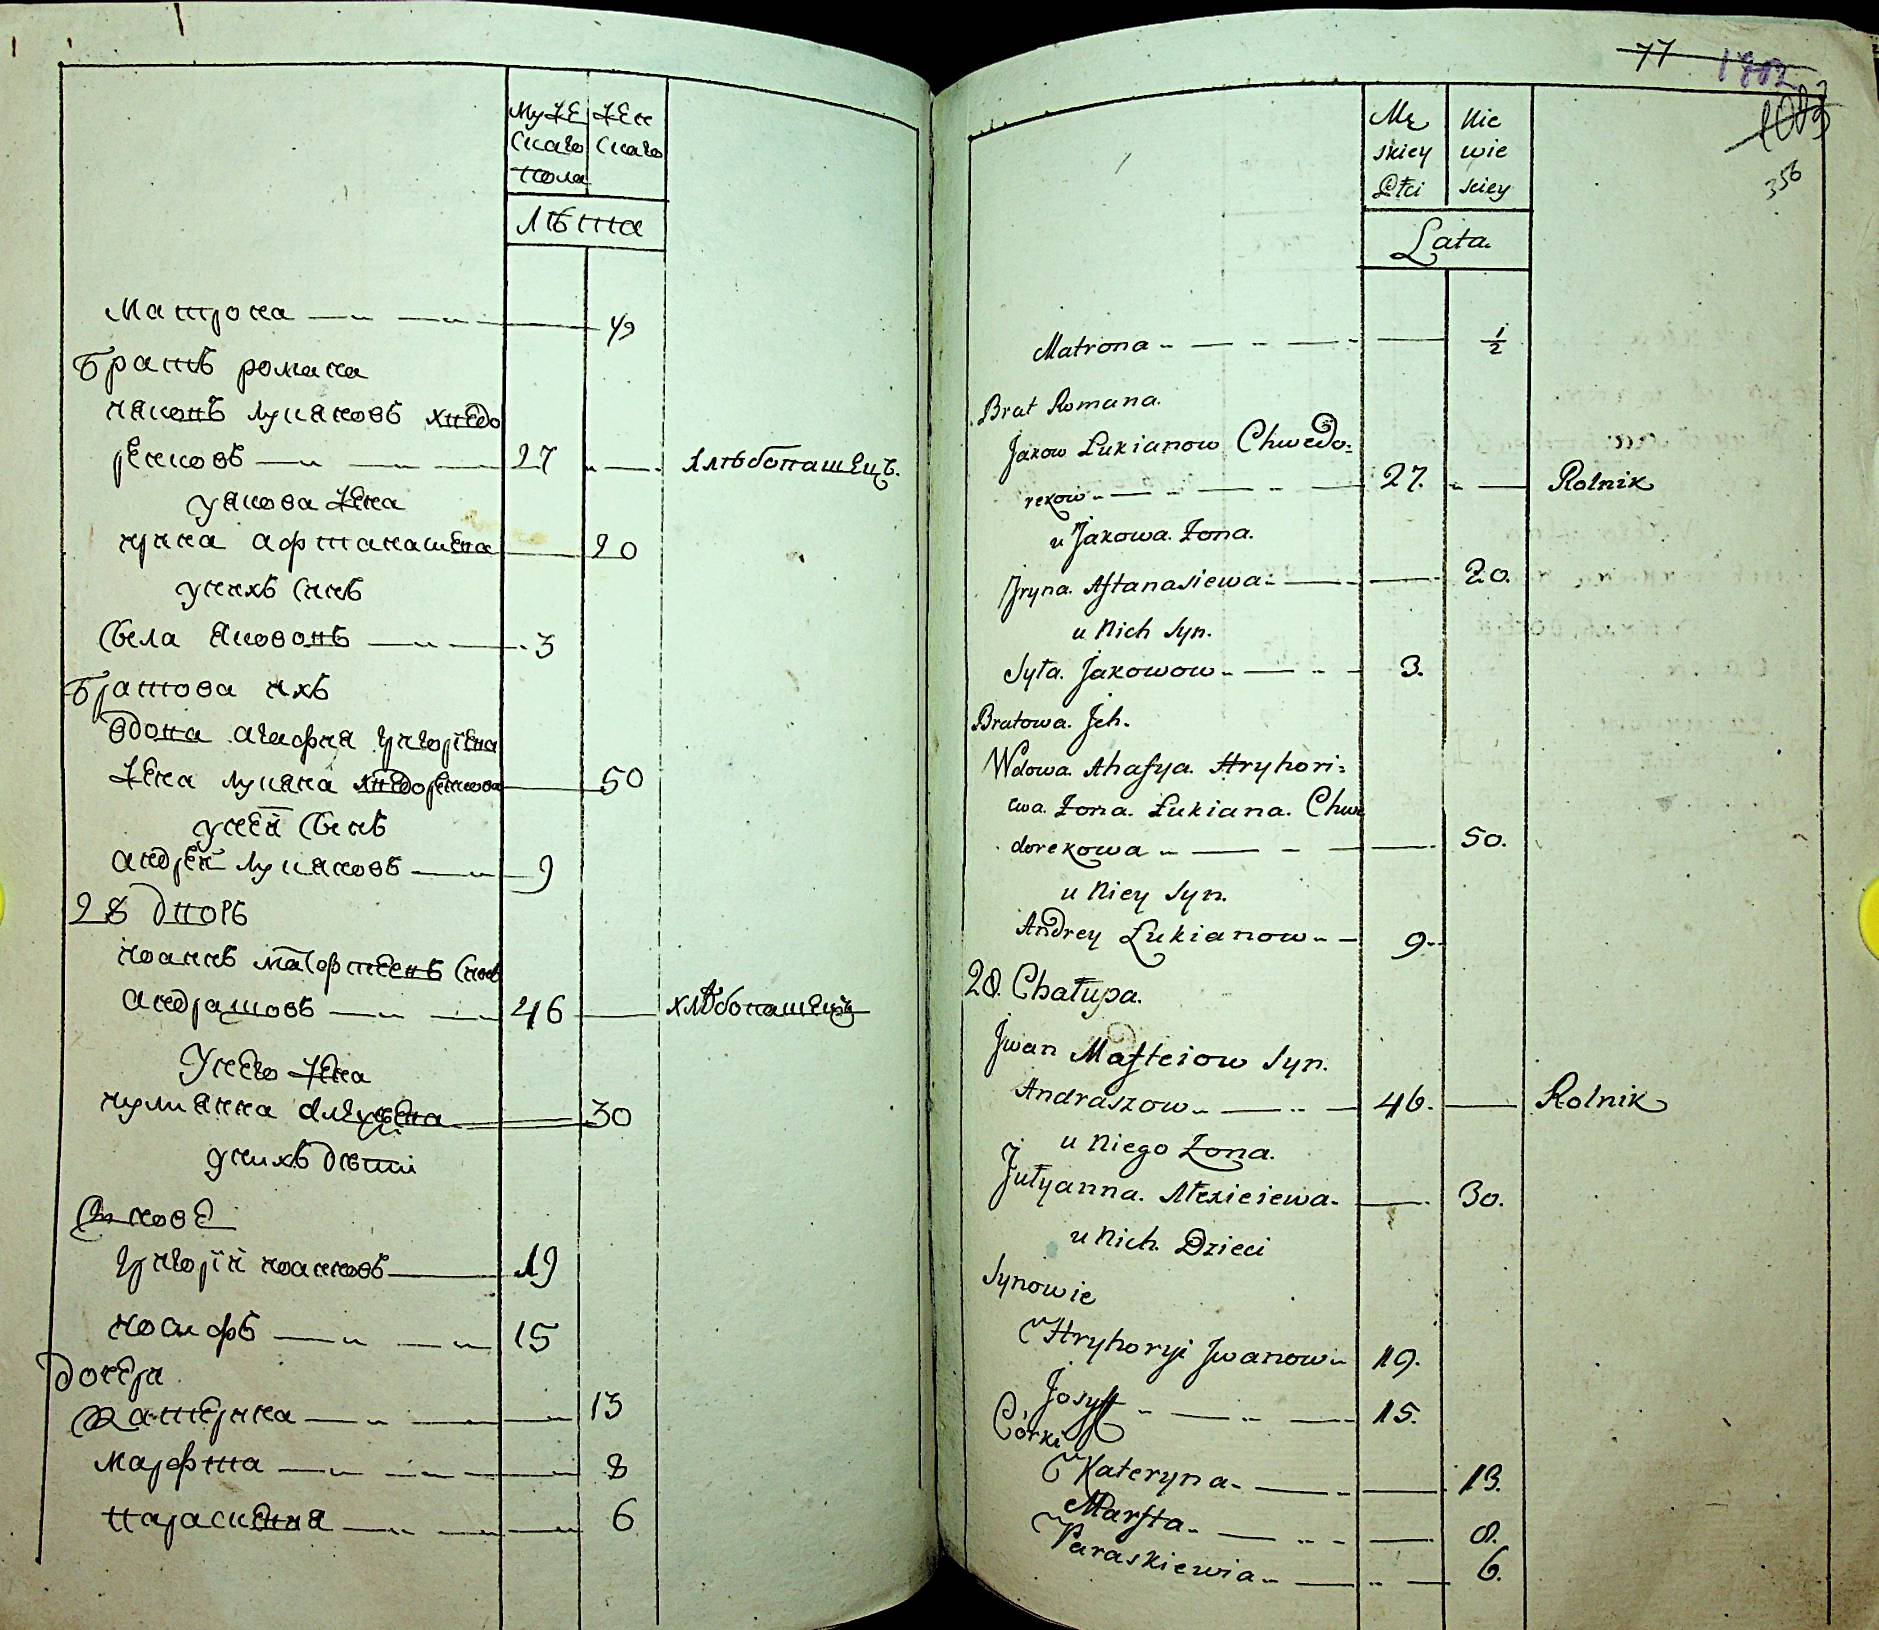 Муже
скаго
пола
Жен
скаго
Лѣта
Матрона
Братъ романа
иаковъ лукяновъ хведо
рековъ 27 хлѣбопашецъ.
у якова жена
ирина афтанасиева 20
у нихъ синъ
Сила Якововъ 3
Братова ихъ
вдова агафия григориева
жена лукяна хведорекова 50
у неи Синъ
андреи лукяновъ 9
28 дворъ
иоаннъ матфтеевъ Синъ
андрашовъ 46 хлѣбопашецъ
У него жена
иулиянна алексиева 30
у нихъ дѣти
Синове
григории иоанновъ 19
иосифъ 15
дочери
Катерина 13
марфта 8
параскевия 6
77 1702
1003
356
Mę
skiey
Płci
Nie
wie
sciey
Lata.
Matrona 1/2
Brat Romana.
Jakow Łukianow Chwedo=
rekow 27. Rolnik
u Jakowa Żona.
Jryna Aftanasiewa 20.
u Nich Syn.
Syła Jakowow 3.
Bratowa Jch.
Wdowa Ahafya Hryhori=
ewa Żona Łukiana Chwe
dorekowa 50.
u Niey Syn.
Andrey Łukianow 9.
28. Chałupa.
Jwan Mafteiow Syn.
Andraszow 46. Rolnik
u Niego Żona.
Jułyanna Alexieiewa 30.
u Nich Dzieci
Synowie
Hryhoryi Jwanow 19.
Josyff 15.
Córki
Kateryna 13.
Marfta 8.
Paraskiewia 6.